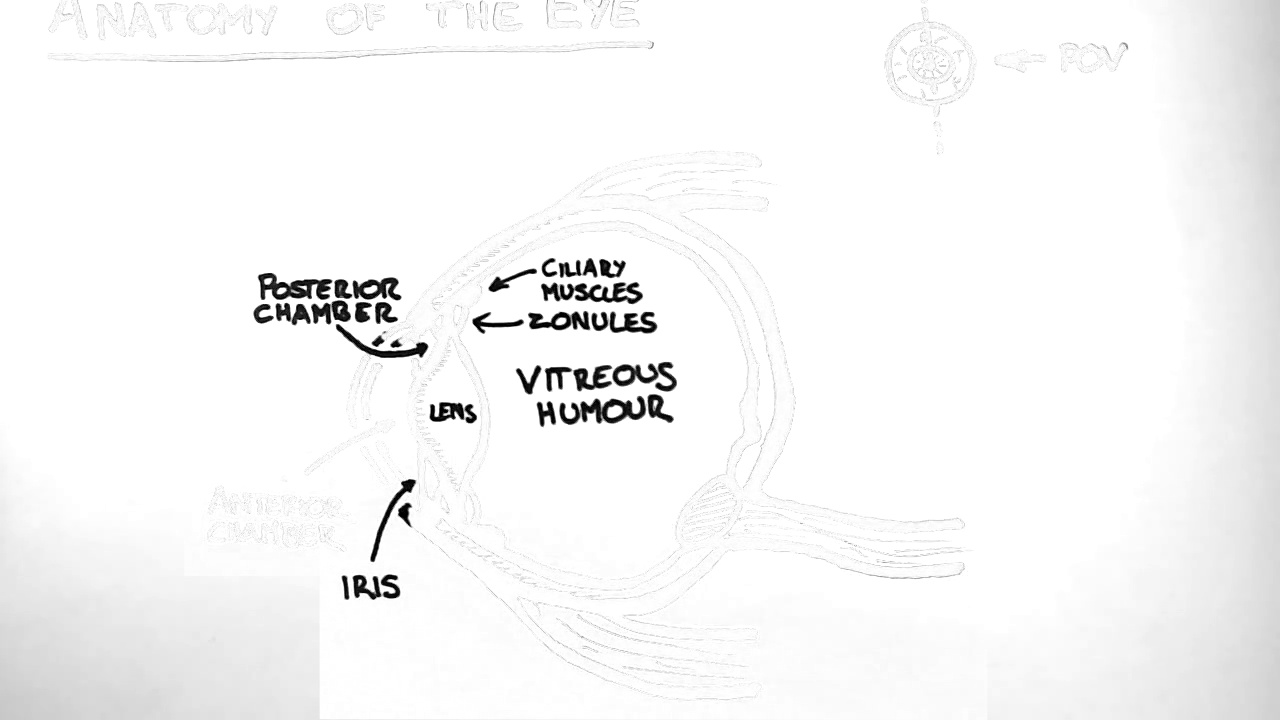 ANATOMY OF THE EYE
POV
POSTERIOR
CHAMBER
CILIARY
MUSCLES
ZONULES
VITREOUS
HUMOUR
LENS
ANTERIOR
CHAMBER
IRIS